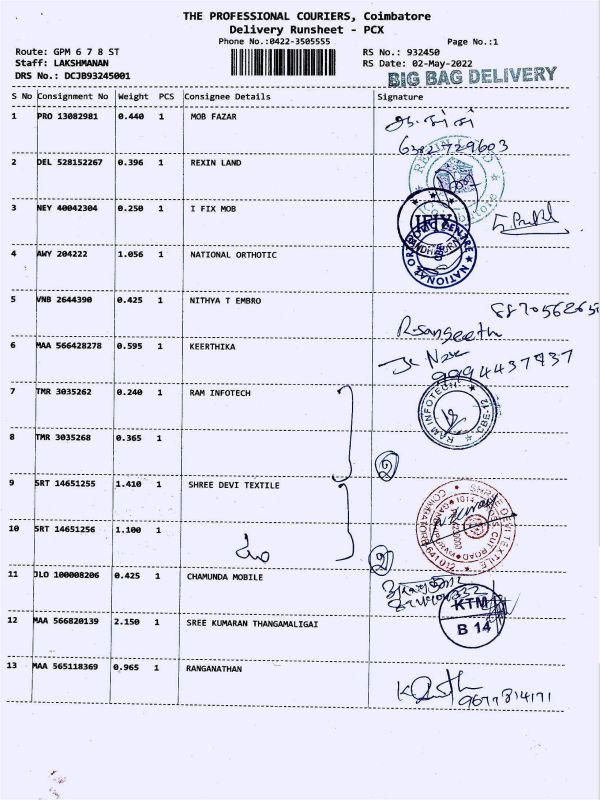 THE PROFESSIONAL COURIERS, Coimbatore
Delivery Runsheet - PCX
Phone No.:0422-3505555 Page No.:1
Route: GPM 6 7 8 ST RS No.: 932450
Staff: LAKSHMANAN RS Date: 02-May-2022
DRS No.: DCJB93245001 BIG BAG DELIVERY
S No Consignment No Weight PCS Consignee Details Signature
1 PRO 13082981 0.440 1 MOB FAZAR
2 DEL 528152267 0.396 1 REXIN LAND
3 NEY 40042304 0.250 1 I FIX MOB
4 AWY 204222 1.056 1 NATIONAL ORTHOTIC
5 VNB 2644390 0.425 1 NITHYA T EMBRO
R.Sangeeth
6 MAA 566428278 0.595 1 KEERTHIKA
9994437937
7 TMR 3035262 0.240 1 RAM INFOTECH
RAM INFOTECH CBE-12
8 TMR 3035268 0.365 1
9 SRT 14651255 1.410 1 SHREE DEVI TEXTILE
SHREE DEVI TEXTILE
10 SRT 14651256 1.100 1
11 JLO 100008206 0.425 1 CHAMUNDA MOBILE
KTM
B 14
12 MAA 566820139 2.150 1 SREE KUMARAN THANGAMALIGAI
13 MAA 565118369 0.965 1 RANGANATHAN
9677814171